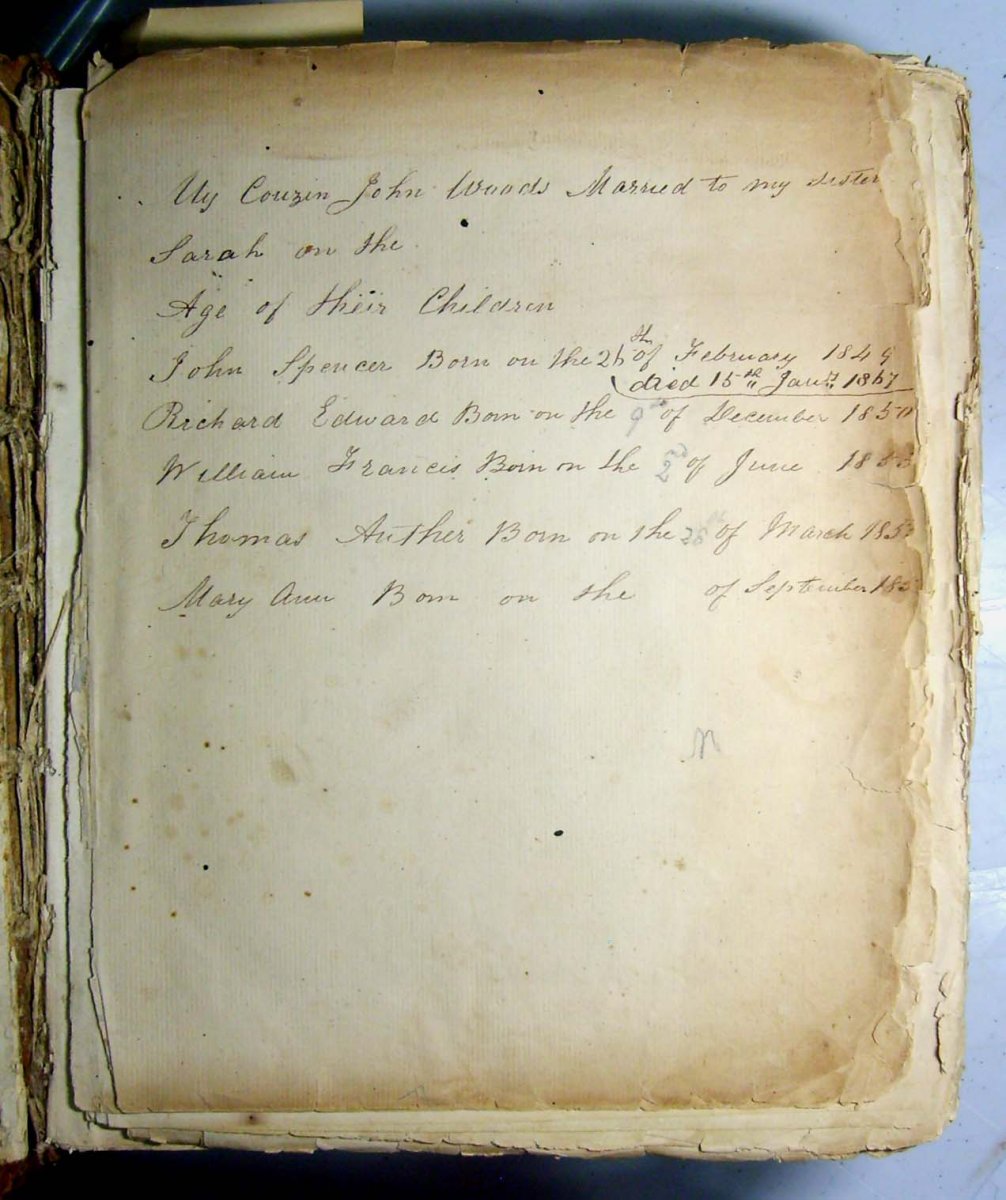 My Couzin John Woods Married to my Sister
Sarah on the
Age of their Children
John Spencer Born on the of February 1849
died 15th Jany 1867
Richard Edward Born on the 9th of December 1850
William Francis Born on the 2nd of June 1853
Thomas Auther Born on the of March
Mary Ann Born on the of September